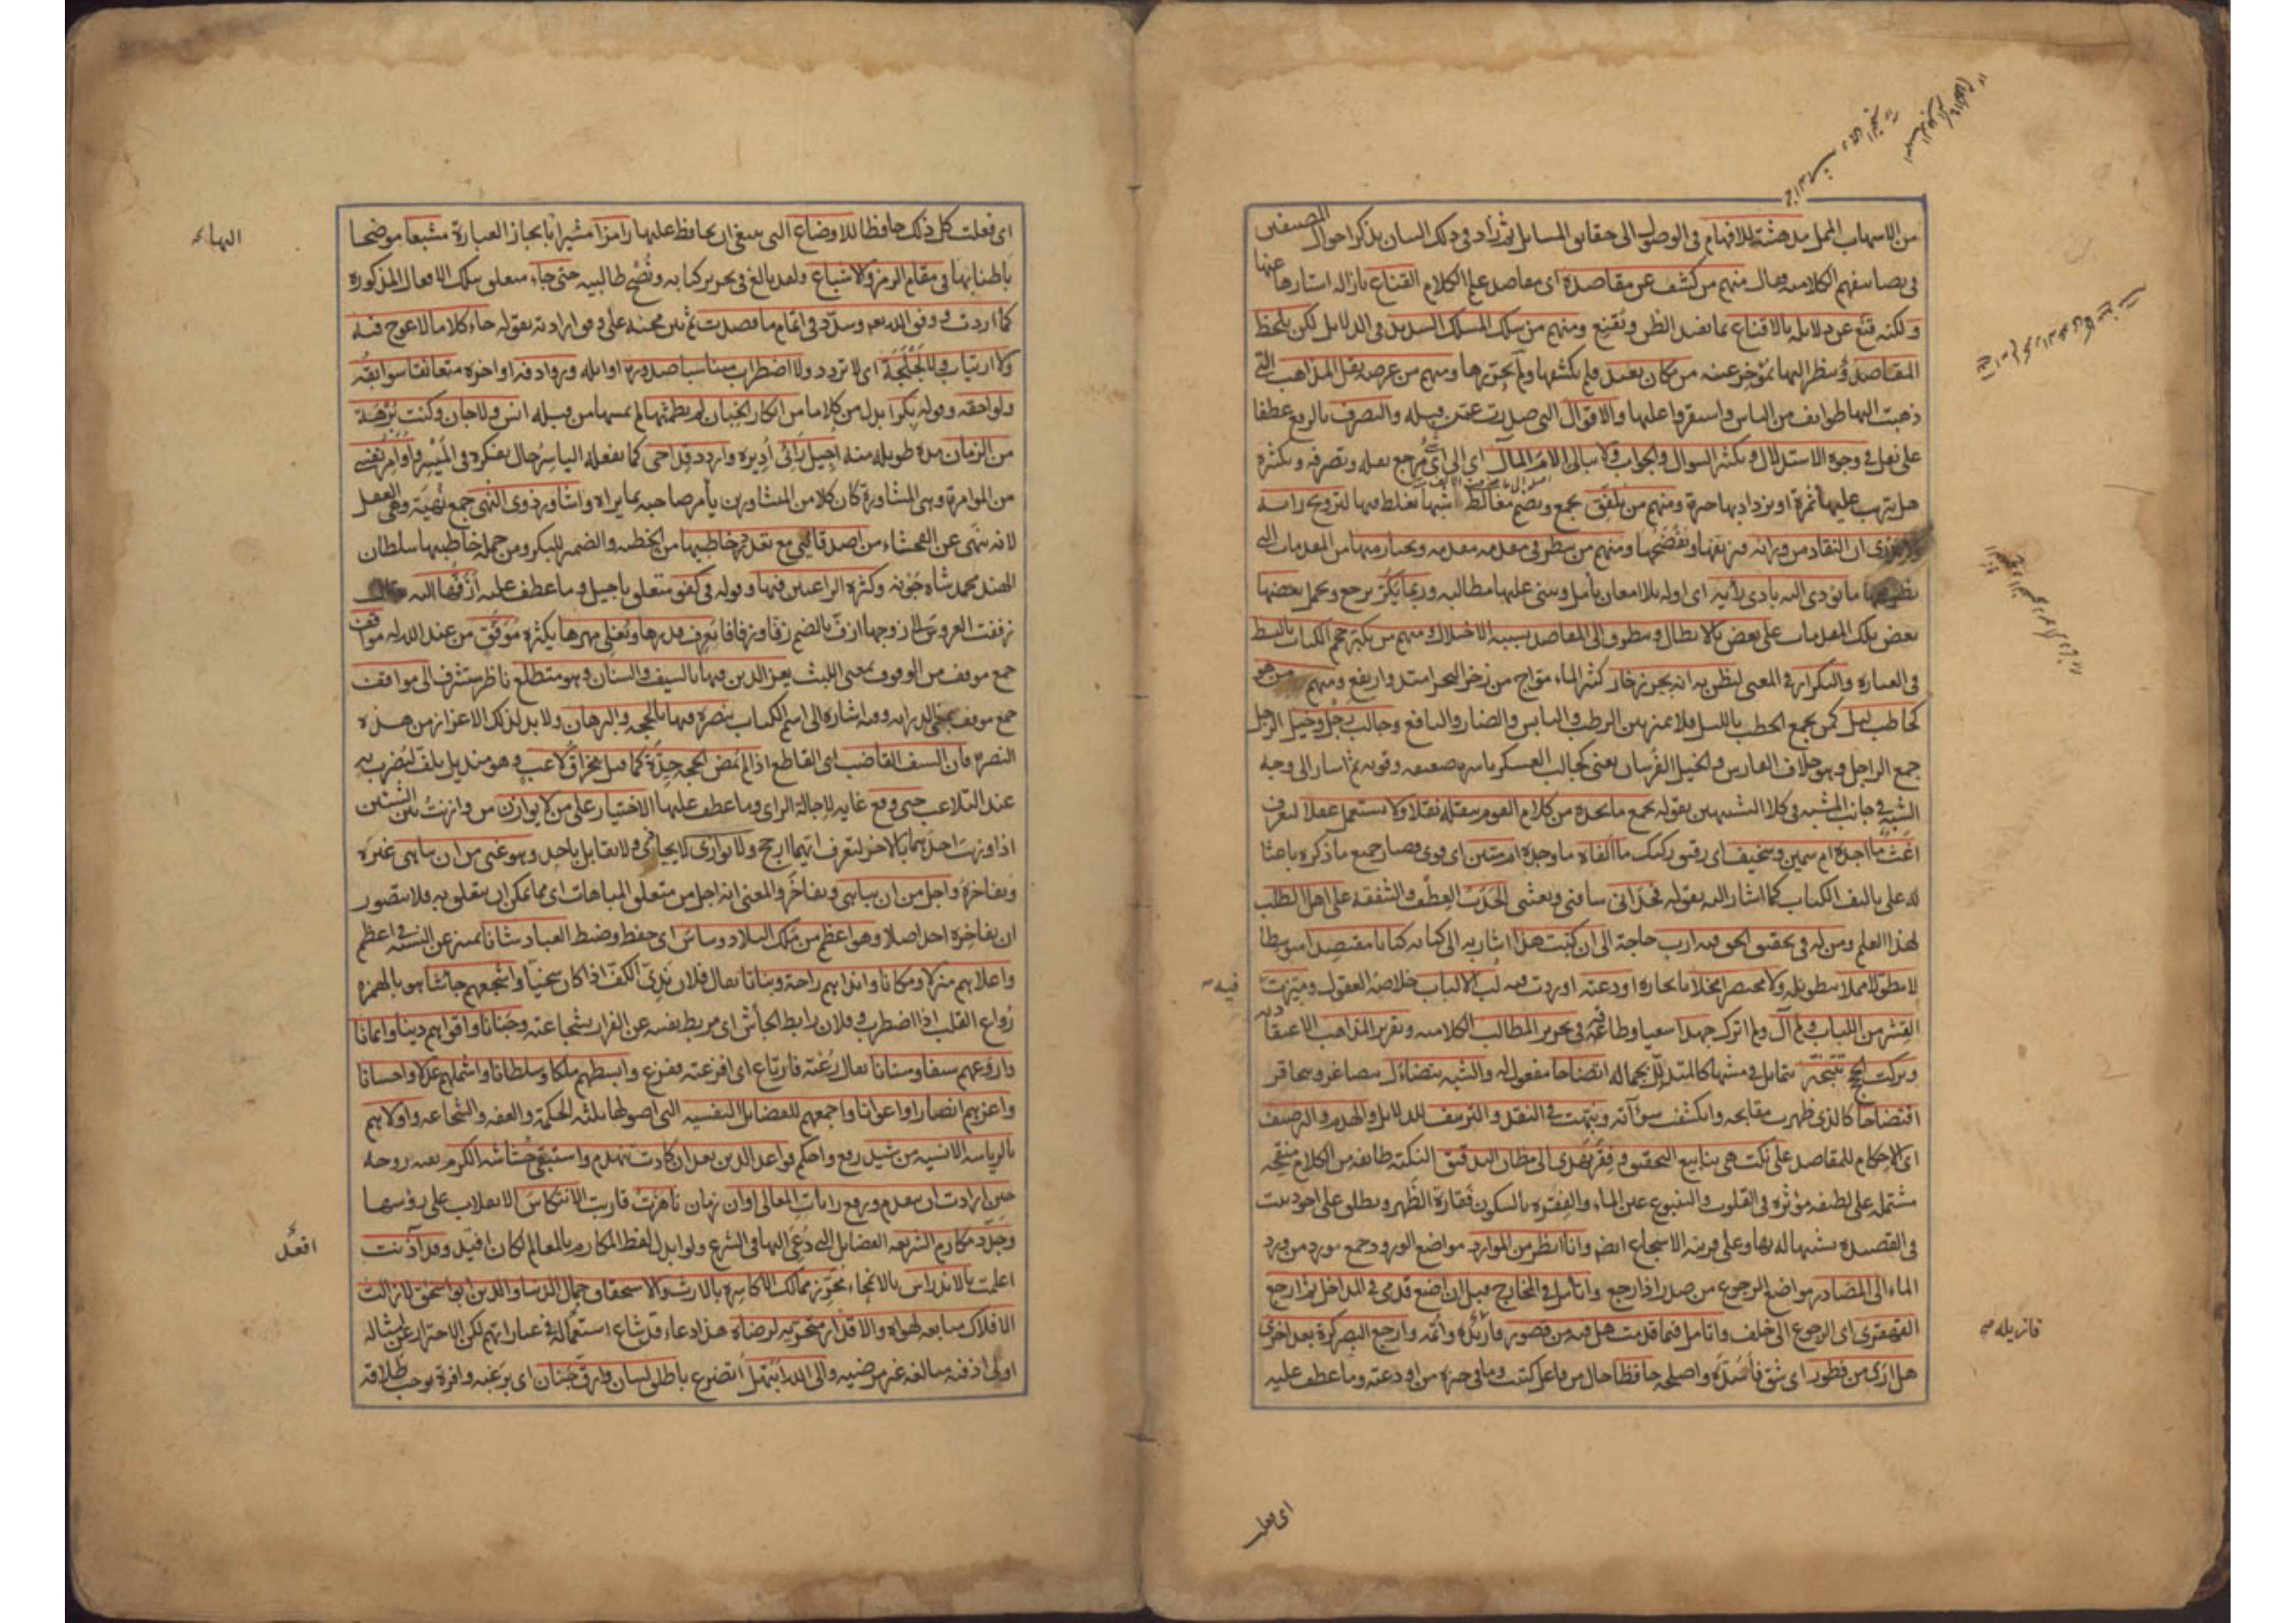 من الاسهاب الممل مدهشة للافهام في الوصول الى حقايق المسايل ثم زاد في ذلك البيان بذكر احوال المصنفين
في تصانيفهم الكلامية وقال منهم من كشف عن مقاصده اى مقاصد علم الكلام القناع بازالة استارها عنها
ولكنه قنع عن دلايله بالاقناع بما يفيد الظن ويقنع ومنهم من سلك المسلك السديد في الدلايل لكن يلحظ
المقاصد وينظر اليها بمؤخر عينه من مكان بعيد فلم يكشفها ولم يحررها ومنهم من غرضه نقل المذاهب التي
ذهبت اليها طوايف من الناس واستقروا عليها والاقوال التي صدرت عمن قبله والتصرف بالرفع عطفا
على نقل في وجوه الاستدلال وتكثير السوال والجواب ولا يبالي الام المآل اى الى اى شئ مرجع نقله وتصرفه وتكثيره
هل يترتب عليها ثمرة او يزداد بها حيرة ومنهم من يلفق يجمع ويضم مغالط شبها يغلط فيها لترويج رايه
ولا يدري ان النقاد من ورائه فيزيفها ويفضحها ومنهم من ينظر في مقدمة مقدمة ويختار منها من المقدمات التي
نظر فيها ما يؤدي اليه بادي رايه اى اوله بلا امعان تأمل ويبني عليها مطالبه وربما يكر يرجع ويحمل بعضها
بعض تلك المقدمات على بعض بالابطال ويتطرق الى المقاصد بسببه الاختلال ومنهم من يكبر حجم الكتاب بالبسط
في العبارة والتكرار في المعنى ليظن به انه بحر زخار كثير الماء مواج من زخر البحر امتد وارتفع ومنهم من هو
كحاطب ليل كمن يجمع الحطب بالليل فلا يميز بين الرطب واليابس والضار والنافع وجالب رجل وخيل الرجل
جمع الراجل وهو خلاف الفارس والخيل الفرسان يعني كجالب العسكر باسره ضعيفه وقويه ثم اشار الى وجه
الشبه في جانب المشبه في كلا التشبيهين بقوله يجمع ما يجده من كلام القوم ينقله نقلا ولا يستعمل عقلا ليعرف
اغث ما اجده ام سمين وسخيف اى رقيق ركيك ما الفاه ما وجده ام متين اى قوى فصار جميع ما ذكره باعثا
له على تاليف الكتاب كما اشار اليه بقوله فحداني ساقني وبعثني الحدب العطف والشفقة على اهل الطلب
لهذا العلم ومن له في تحقيق الحق فيه ارب حاجة الى ان كتبت هذا اشار به الى كتابه كتابا مقتصدا متوسطا
لا مطولا مملا بتطويله ولا مختصرا مخلا بايجازه اودعته اوردت فيه لب الالباب خلاصة العقول وميزت
فيه
القشر من اللباب ولم آل ولم اترك جهدا سعيا وطاقة في تحرير المطالب الكلامية وتقرير المذاهب الاعتقادية
وتركت الحجج تتبختر تتمايل في مشيها كالمتدلل بجماله اتضاحا مفعول له والشبه يتضاءل يتصاغر ويتحاقر
افتضاحا كالذي ظهرت مقابحه وانكشفت سوآته ونبهت في النقد والتزييف للدلايل والهدم والترصيف
اى الاحكام للمقاصد على نكت هي ينابيع التحقيق وفقر تهدى الى مظان التدقيق النكتة طايفة من الكلام منقحة
مشتملة على لطيفة مؤثرة في القلوب والينبوع عين الماء والفقرة بالسكون فقارة الظهر ويطلق على اجود بيت
في القصيدة تشبيها له بها وعلى قرينة الاسجاع ايضا وانا انظر من الموارد مواضع الورود جمع مورد من ورد
الماء الى المصادر مواضع الرجوع من صدر اذا رجع واتأمل في المخارج قبل ان اضع قدمي في المداخل ثم ارجع
القهقرى اى الرجوع الى خلف واتامل فيما قدمت هل فيه من قصور فازيله واتمه وارجع البصر كرة بعد اخرى
فازيله
هل ارى من فطور اى شق فأسده واصلحه حافظا حال من فاعل كتبت وما في حيزه من اودعته وما عطف عليه
اى فعلت
اى فعلت كل ذلك حافظا للاوضاع التي ينبغي ان يحافظ عليها رامزا مشيرا بايجاز العبارة مشبعا موضحا
باطنابها في مقام الرمز والاشباع ولقد بالغ في تحرير كتابه ونصح طالبيه حتى جاء متعلق بتلك الافعال المذكورة
كما اردت ووفق الله تعالى وسدد في اتمام ما قصدت ثم بين مجيئه على وفق ارادته بقوله جاء كلاما لا عوج فيه
ولا ارتياب ولا لجلجة اى لا تردد ولا اضطراب متناسبا صدوره اوايله وروادفه اواخره متعانقا سوابقه
ولواحقه وقوله بكرا بدل من كلاما من ابكار الجنان لم يطمثها لم يمسها من قبله انس ولا جان وكنت برهة
من الزمان مدة طويلة منه اجيل رأيي اديره واردد قداحي كما يفعله الياسر حال تفكره في الميسر واوامر نفسي
من الموامرة وهي المشاورة كان كلا من المتشاورين يأمر صاحبه بما يراه واشاور ذوي النهى جمع نهية وهي العقل
لانه ينهى عن الفحشاء من اصدقائي مع تعدد خاطبيها من الخطبة والضمير للبكر ومن جملة خاطبيها سلطان
الهند محمد شاه جونه وكثرة الراغبين فيها وقوله في كفو متعلق باجيل وما عطف عليه ازفها اليه
زففت العروس الى زوجها ازف بالضم زفا وزفافا يعرف قدرها ويغلى مهرها يكثره موفق من عند الله له مواقف
جمع موقف من الوقوف بمعنى اللبث يعز الدين فيها بالسيف والسنان وهو متطلع ناظر متشرف الى مواقف
جمع موقف بمعنى الدراية وفيه اشارة الى اسم الكتاب ينصره فيها بالحجة والبرهان ولا بد لذلك الاعزاز من هذه
النصرة فان السيف القاضب اى القاطع اذا لم يمض الحجة حده كما قيل مخراق لاعب وهو منديل يلف ليضرب به
عند التلاعب حتى وقع غاية لاجالة الراى وما عطف عليها الاختيار على من لا يوازن من وازنت بين الشيئين
اذا وزنت احدهما بالاخر ليعرف ايهما ارجح ولا يوازي لا يحاذى ولا يقابل باحد وهو غني من ان يباهي غيره
ويفاخره واجل من ان يباهى ويفاخر والمعنى انه اجل من متعلق المباهات اى مما يمكن ان يتعلق به فلا يتصور
ان يفاخره احد اصلا وهو اعظم من ملك البلاد وساس اى حفظ وضبط العباد شانا تمييز عن النسبة في اعظم
واعلاهم منزلا ومكانا وانداهم راحة وبنانا يقال فلان ندي الكف اذا كان سخيا واشجعهم جاشا هو بالهمزة
رواع القلب اذا اضطرب وفلان رابط الجأش اى يربط نفسه عن الفرار بشجاعته وجنانا واقواهم دينا وايمانا
واروعهم سيفا وسنانا يقال رعته فارتاع اى افزعته ففزع وابسطهم ملكا وسلطانا واشملهم عدلا واحسانا
واعزهم انصارا واعوانا واجمعهم للفضايل النفسية التي اصولها ثلثة الحكمة والعفة والشجاعة واولاهم
بالرياسة الانسية من شيد رفع واحكم قواعد الدين بعد ان كادت تنهدم واستبقى حشاشة الكرم بقية روحه
حين ارادت ان تنعدم ورفع رايات المعالي اوان زمان ناهزت قاربت الانتكاس الانقلاب على رؤسها
وجدد مكارم الشريعة الفضايل التي دعى اليها في الشرع ولو ابدل لفظ المكارم بالمعالم لكان اقيد وقد آذنت
اعلمت بالاندراس بالانمحاء محرز ممالك الاكاسرة بالارث والاستحقاق جمال الدنيا والدين ابو اسحق لازالت
الافلاك متابعة لهواه والاقدار متحرية لرضاه هذا دعاء قد شاع استعماله في عباراتهم لكن الاحتراز عن امثاله
اولى اذ فيه مبالغة غير مرضية والى الله ابتهل اتضرع باطلق لسان وارق جنان اى برغبة وافرة توجب طلاقة